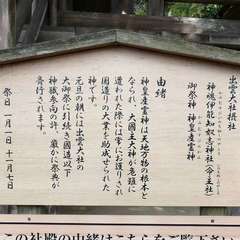 出雲大社摂社
神魂伊能知奴志神社（命主社）
御祭神　神皇産霊神
由緒
神皇産霊神は天地万物の根本と
なられ、大国主大神が危難に
遭われた際には常にお護りされ
国造りの大業を助成せられた
神です。
元旦の朝には出雲大社の
大御祭に引続き国造以下
神職参向の許、厳かに祭事が
斎行されます。
祭日　一月一日　十二月七日
この社殿の由緒はこちらをご覧下さい